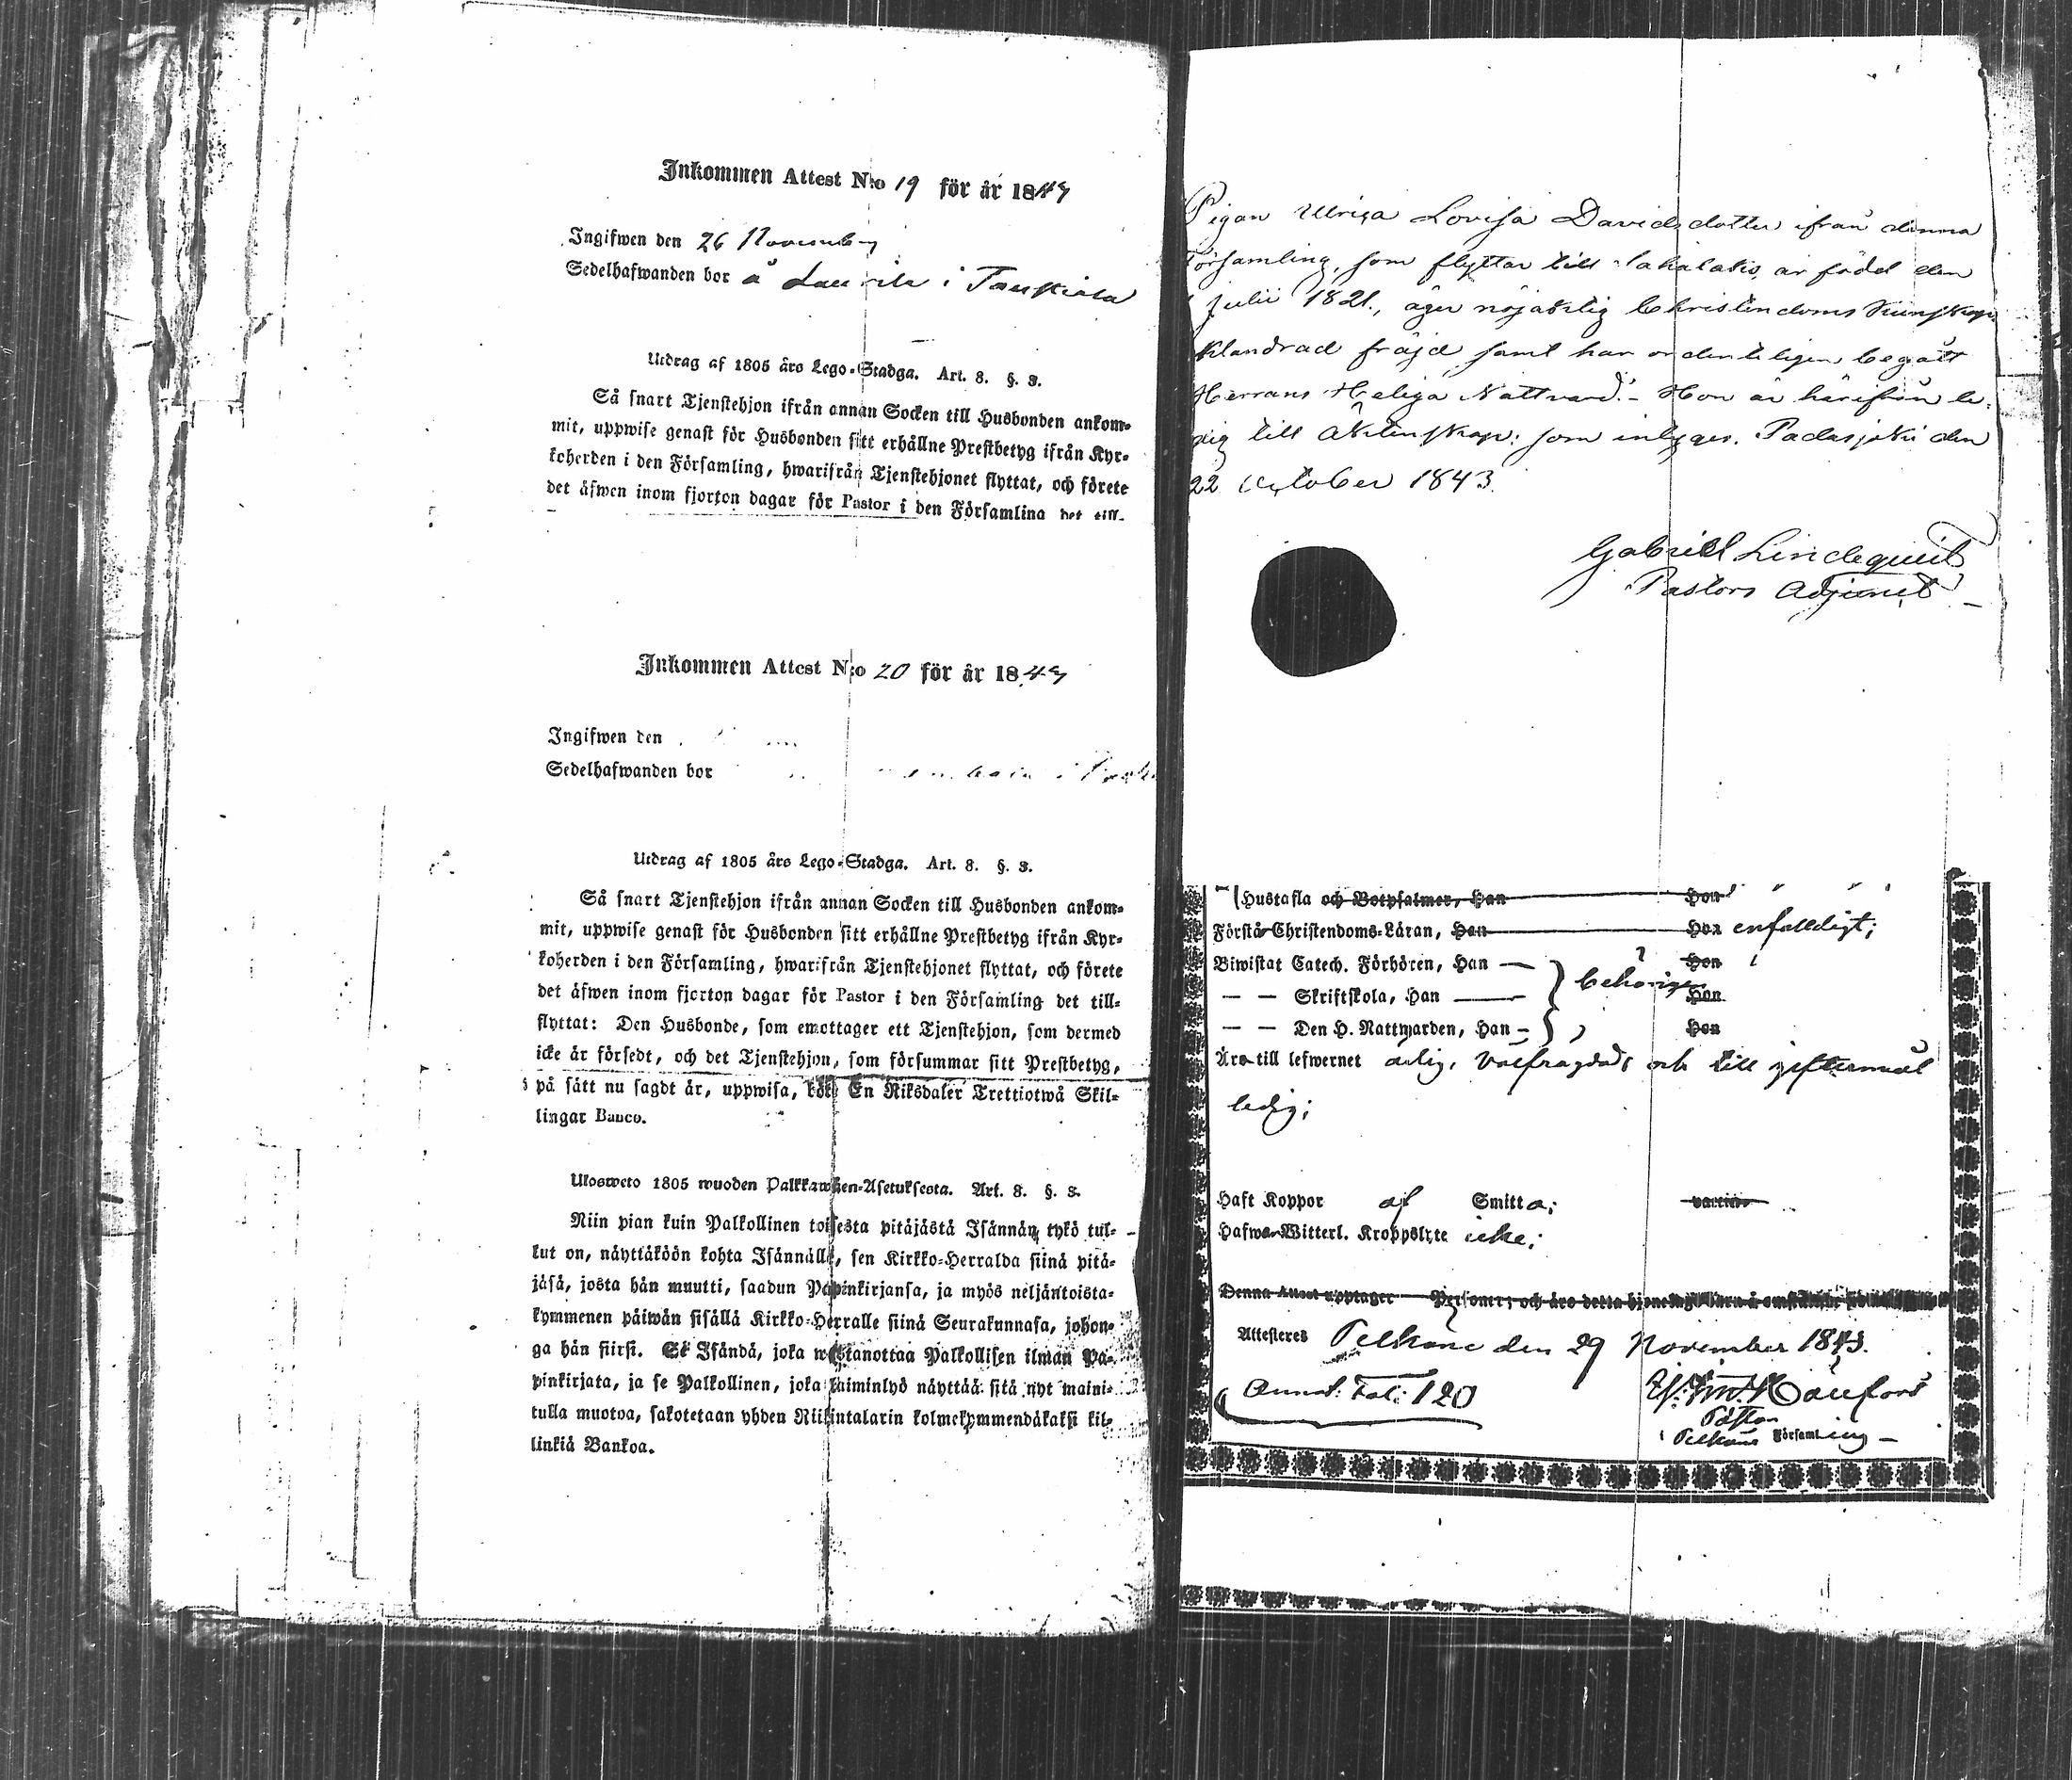 Inkommen Attest N:o 19 för år 1843
Ingifwen den 26 November
Sedelhafwanden bor å Laurila i Tauskiala
Utdrag af 1805 års Lego-Stadga. Art. 8. §. 3.
Så snart Tjenstehjon ifrån annan Socken till Husbonden ankom-
mit, uppwise genast för Husbonden sitt erhållne Prestbetyg ifrån Kyr-
koherden i den Församling, hwarifrån Tjenstehjonet flyttat, och förete
det äfwen inom fjorton dagar för Pastor i den Församling det till-
Inkommen Attest N:o 20 för år 1843
Ingifwen den
Sedelhafwanden bor
Utdrag af 1805 års Lego-Stadga. Art. 8. §. 3.
Så snart Tjenstehjon ifrån annan Socken till Husbonden ankom-
mit, uppwise genast för Husbonden sitt erhållne Prestbetyg ifrån Kyr-
koherden i den Församling, hwarifrån Tjenstehjonet flyttat, och förete
det äfwen inom fjorton dagar för Pastor i den Församling det till-
flyttat: Den Husbonde, som emottager ett Tjenstehjon, som dermed
icke är försedt, och det Tjenstehjon, som försummar sitt Prestbetyg,
på sätt nu sagdt är, uppwisa, böte En Riksdaler Trettiotwå Skil-
lingar Banco.
Ulosweto 1805 wuoden Palkkawäen-Asetuksesta. Art. 8. §. 3.
Niin pian kuin Palkollinen toisesta pitäjästä Isännän tykö tul-
lut on, näyttäköön kohta Isännälle, sen Kirkko-Herralda siinä pitä-
jäsä, josta hän muutti, saadun Papinkirjansa, ja myös neljäntoista-
kymmenen päiwän sisällä Kirkko-Herralle siinä Seurakunnasa, johon-
ga hän siirsi. Se Isändä, joka wastanottaa Palkollisen ilman Pa-
pinkirjata, ja se Palkollinen, joka laiminlyö näyttää sitä nyt maini-
tulla muotoa, sakotetaan yhden Riikintalarin kolmekymmendäkaksi kil-
linkiä Bankoa.
Pigan Ulrica Lovisa Davidsdotter ifrån denna
Församling, som flyttar till Sahalaks, är född den
Julii 1821., äger nöjaktig Christendoms Kunskap,
klandrad fräjd samt har ordenteligen begått
Herrans Heliga Nattvard.- Hon är härifrån le-
dig till äktenskap: som intygas. Padasjoki den
22 October 1843.
Gabriel Lindequist
Pastors Adjunct
Hustafla och Botpsalmer, Han Hon
Förstå Christendoms-Läran, Han Hon enfaldigt;
Biwistat Catech. Förhören, Han Hon
— — Skriftskola, Han behörigen Hon
— — Den H. Nattwarden, Han Hon
Äro till lefwernet ärlig, välfrägdad och till giftermål
ledig;
Haft Koppor af Smitta;
Hafwa Witterl. Kroppslyte icke;
Denna Attest upptager Personer; och äro detta
Attesteres Pelkäne den 29 November 1843.
Annot: Fol: 120
Pastor
i Pelkäne Församling